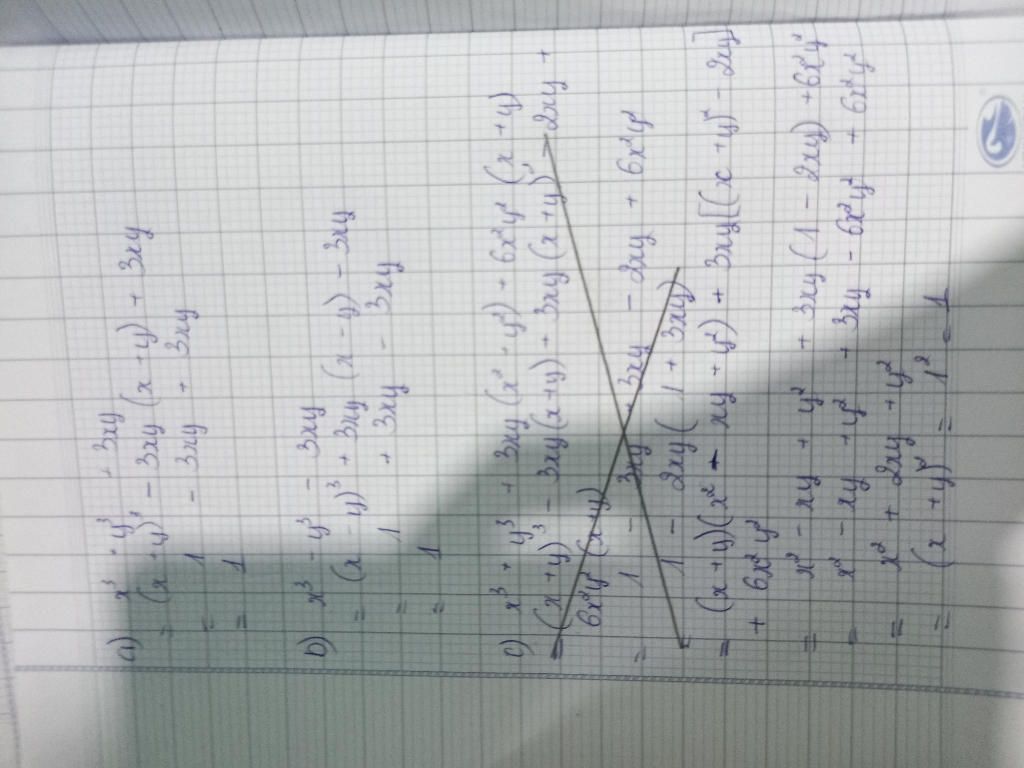 a) x³ + y³ + 3xy
= (x + y)³ - 3xy (x + y) + 3xy
= 1 - 3xy + 3xy
= 1
b) x³ - y³ - 3xy
= (x - y)³ + 3xy (x - y) - 3xy
= 1 + 3xy - 3xy
= 1
c) x³ + y³ + 3xy (x² + y²) + 6x²y² (x + y)
= (x + y)³ - 3xy (x + y) + 3xy (x + y)² - 2xy +
6x²y² (x + y)
= 1 - 3xy + 3xy - 2xy + 6x²y²
= 1 - 2xy ( 1 + 3xy)
= (x + y) (x² - xy + y²) + 3xy [(x + y)² - 2xy]
+ 6x²y²
= x² - xy + y² + 3xy (1 - 2xy) + 6x²y²
= x² - xy + y² + 3xy - 6x²y² + 6x²y²
= x² + 2xy + y²
= (x + y)² = 1² = 1